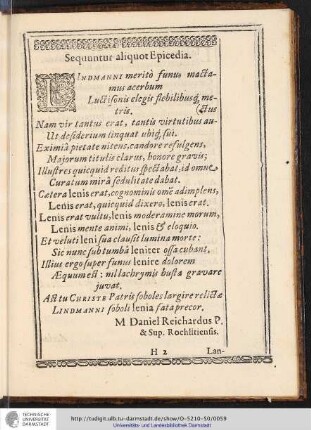 Sequuntur aliquot Epicedia.
LINDMANNI meritò funus macta-
mus acerbum
Luctisonis elegis flebilibusq́; me-
tris. (ctus
Nam vir tantus erat, tantis virtutibus au-
Ut desiderium linquat ubiq́; sui.
Eximiâ pietate nitens, candore refulgens,
Majorum titulis clarus, honore gravis;
Illustres quicquid reditus spectabat, id omne
Curatum mirâ sedulitate dabat.
Cætera lenis erat, cognominis omẽ adimplens,
Lenis erat, quicquid dixero, lenis erat.
Lenis erat vultu, lenis moderamine morum,
Lenis mente animi, lenis & eloquio.
Et veluti leni sua clausit lumina morte:
Sic nunc sub tumbâ leniter ossa cubant,
Illius ergo super funus lenire dolorem
Æquum est: nil lachrymis busta gravare
juvat.
Ast tu CHRISTE Patris soboles largire relictæ
LINDMANNI soboli lenia fata precor.
M Daniel Reichardus P.
& Sup. Rochlitiensis.
H 2 Lan-
TECHNISCHE
UNIVERSITÄT
DARMSTADT
http://tudigit.ulb.tu-darmstadt.de/show/O-5210-50/0059
Universitäts- und Landesbibliothek Darmstadt